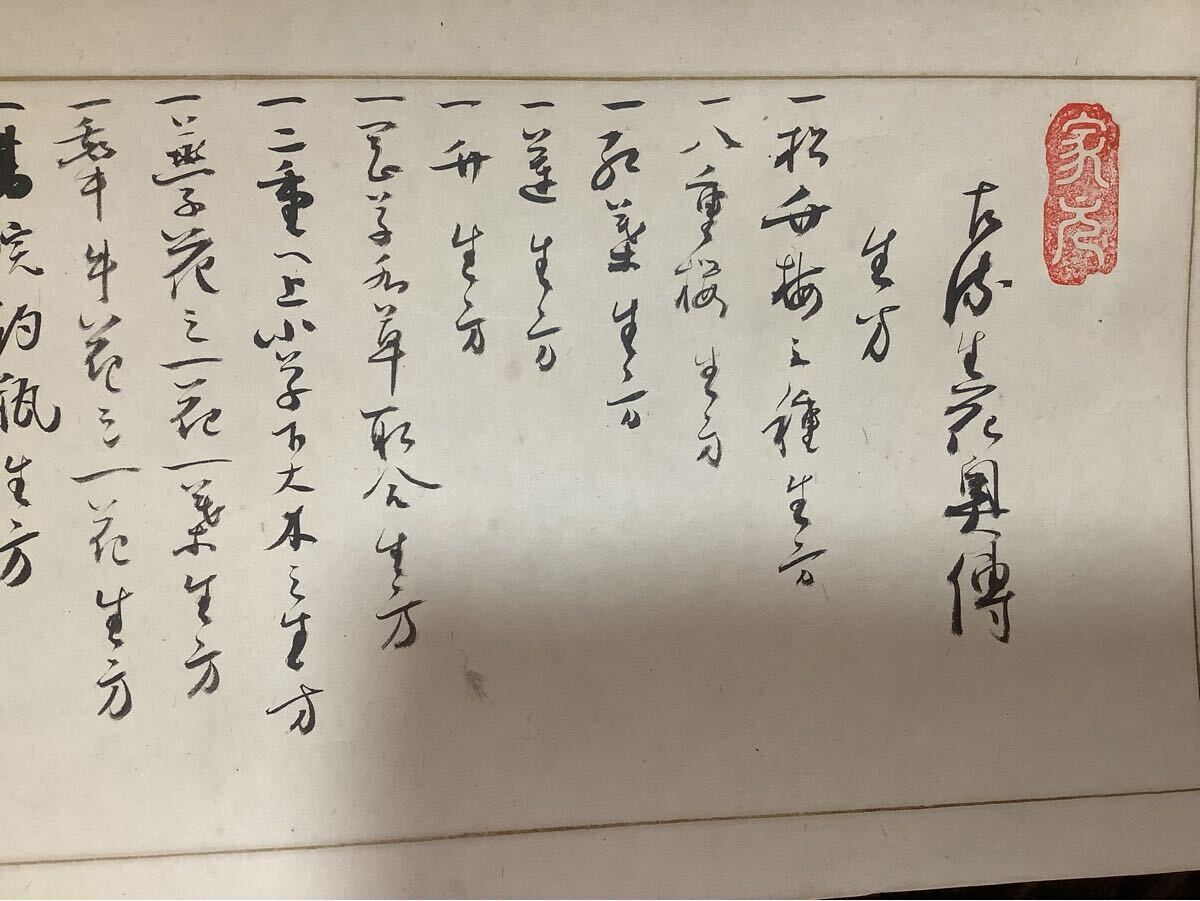 家元
古流生花奥傳
生方
一松竹梅三種生方
一八重桜生方
一紅葉生方
一蓮生方
一竹生方
一草水草取合生方
一二重へ上小草下大木之生方
一燕子花之一花一葉生方
一牽牛花之一花生方
一釣瓶生方